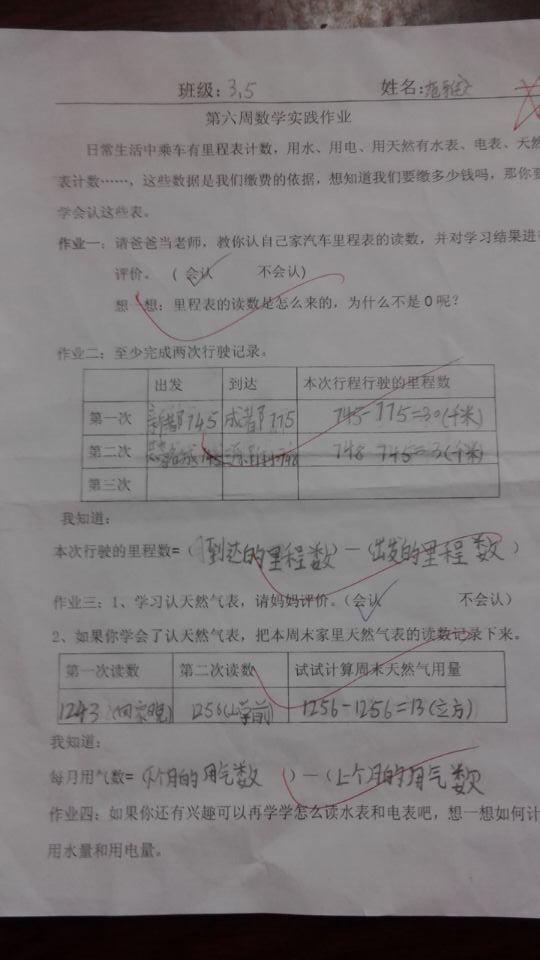 班级: 3.5 姓名:
第六周数学实践作业
日常生活中乘车有里程表计数，用水、用电、用天然有水表、电表、天然
表计数……，这些数据是我们缴费的依据，想知道我们要缴多少钱吗，那你要
学会认这些表。
作业一：请爸爸当老师，教你认自己家汽车里程表的读数，并对学习结果进行
评价。 （ 会认 不会认）
想一想：里程表的读数是怎么来的，为什么不是 0 呢？
作业二：至少完成两次行驶记录。
出发 到达 本次行程行驶的里程数
第一次 新都745 成都775 745-775=30(千米)
第二次 748-745=3(千米)
第三次
我知道:
本次行驶的里程数=（到达的里程数）－（出发的里程数）
作业三：1、学习认天然气表，请妈妈评价。（会认 不会认）
2、如果你学会了认天然气表，把本周末家里天然气表的读数记录下来。
第一次读数 第二次读数 试试计算周末天然气用量
1243(回家晚) 1256(上学前) 1256-1256=13(立方)
我知道:
每月用气数=（个月的用气数 ）－（上个月的用气数
作业四：如果你还有兴趣可以再学学怎么读水表和电表吧，想一想如何计
用水量和用电量。